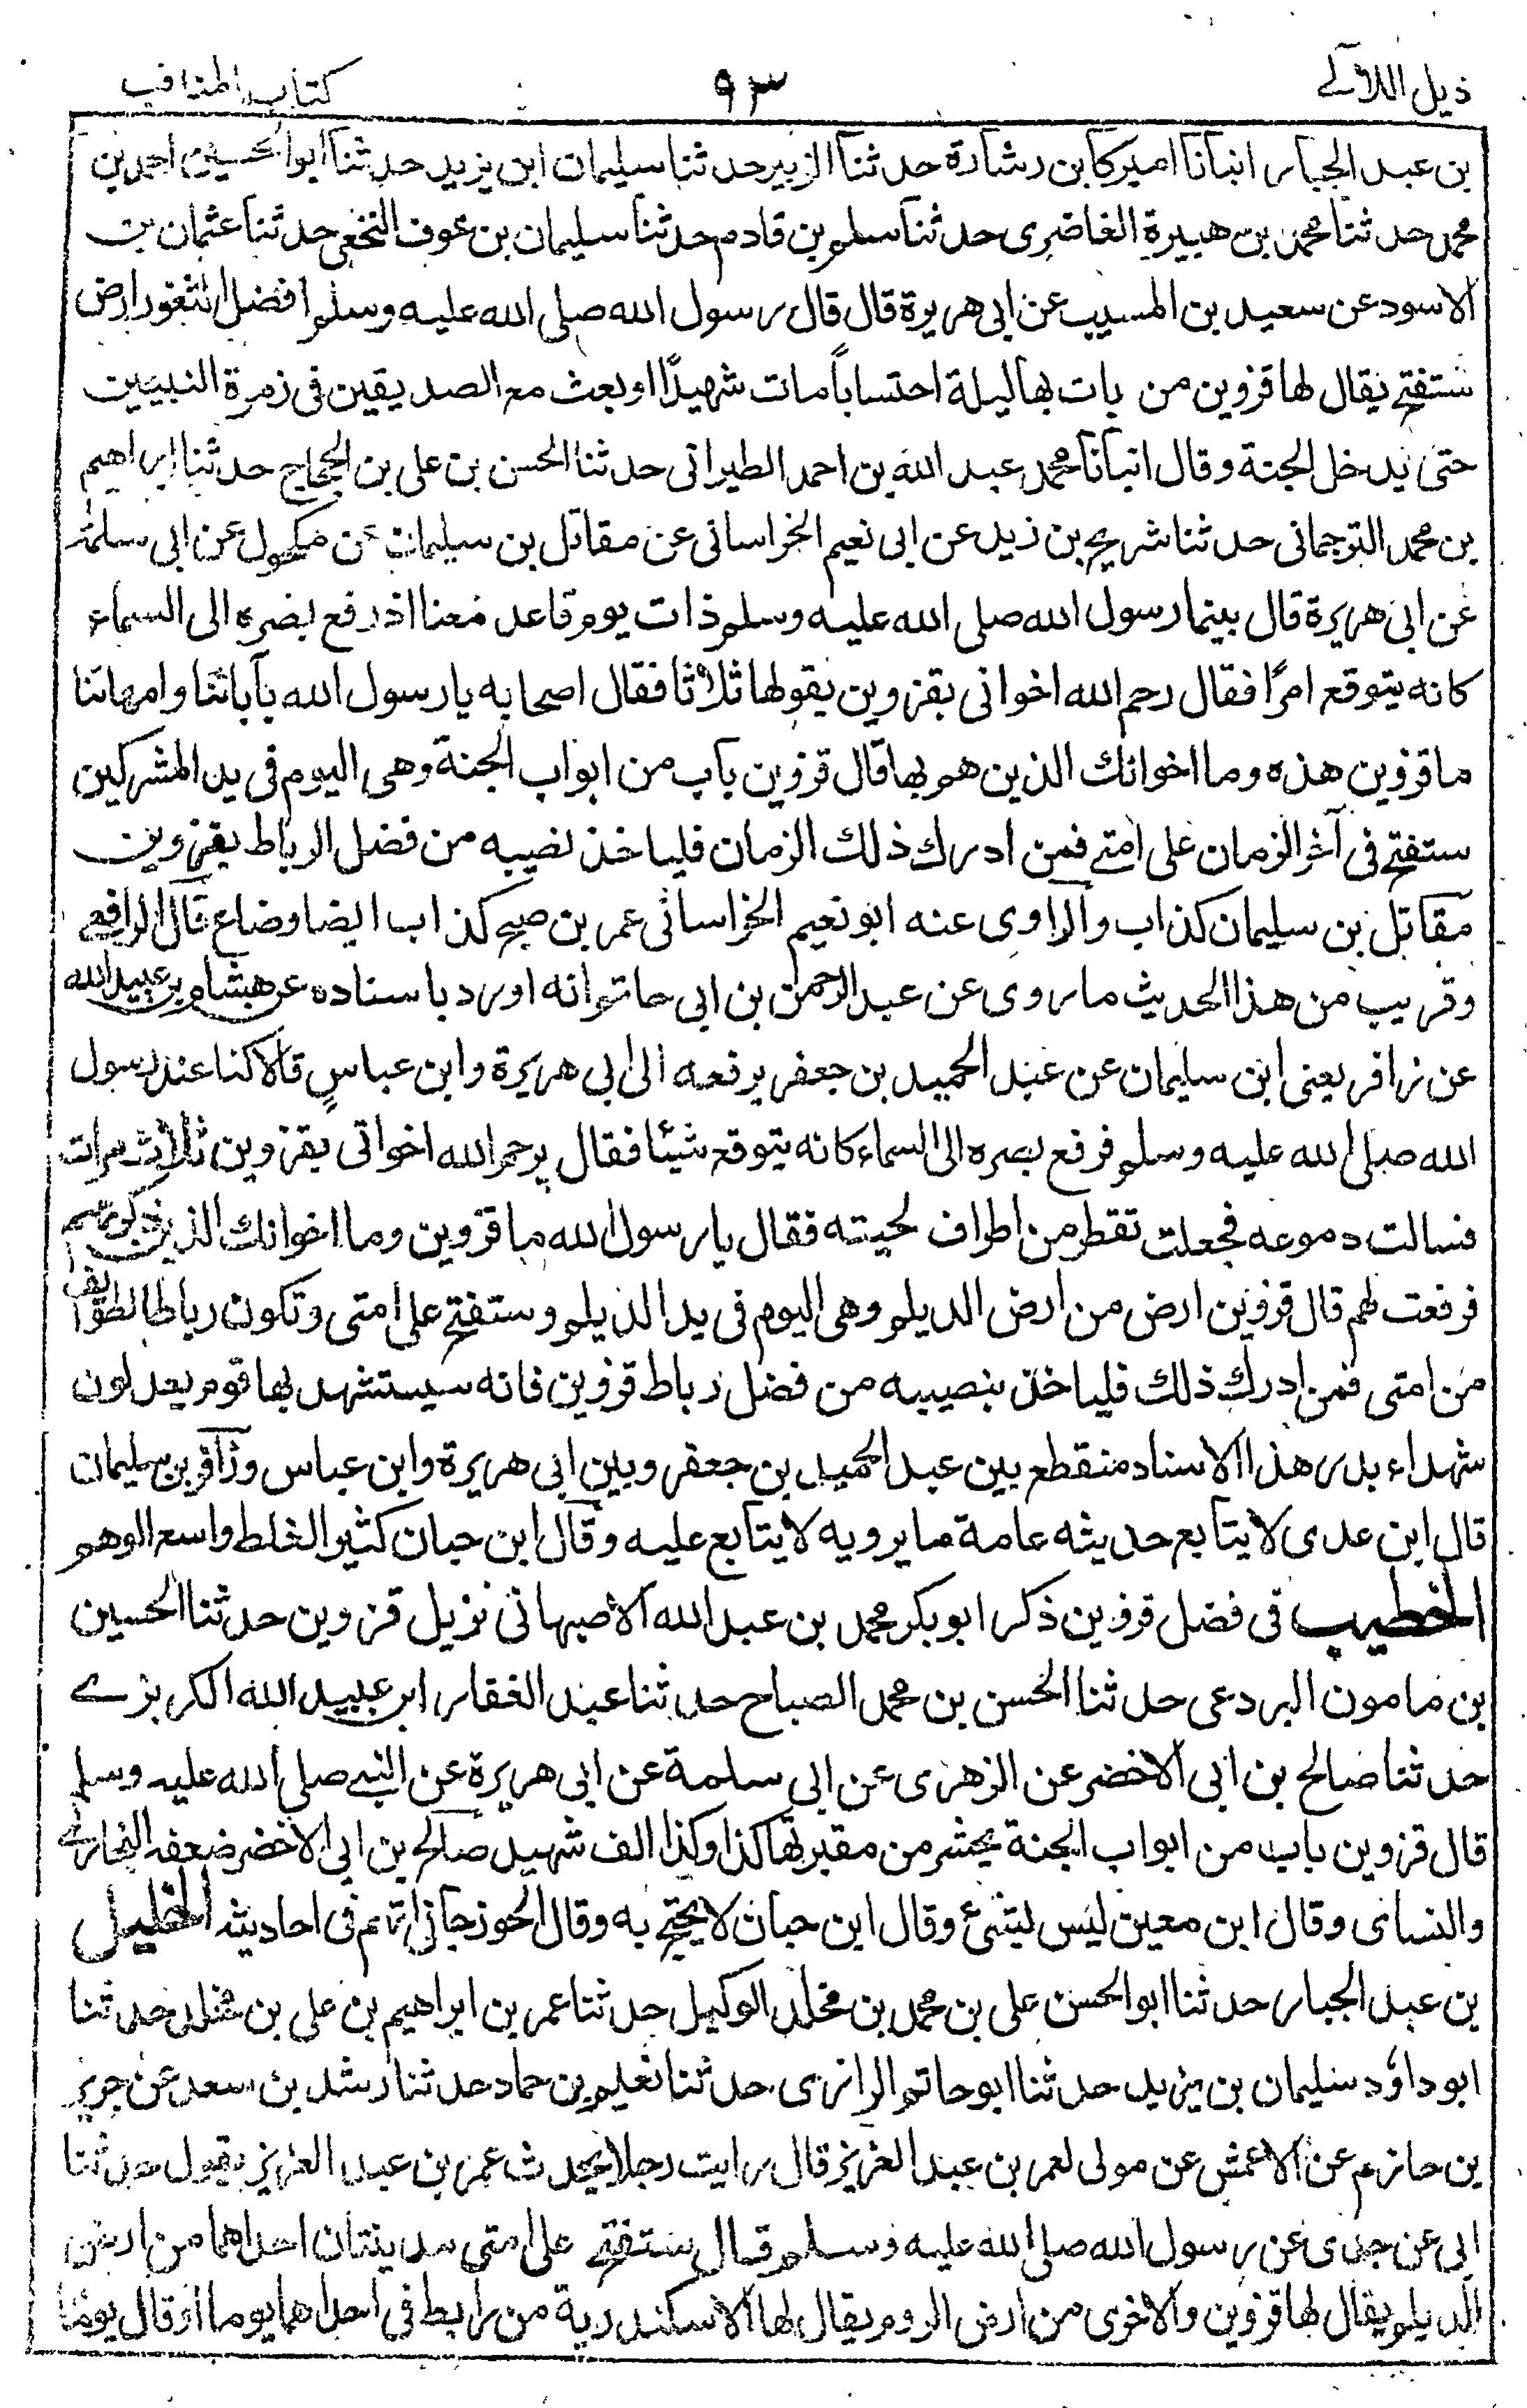 ذيل اللآلے ٩٣ كتاب المناقب
بن عبد الجبار انبأنا اميركا بن رشارة حدثنا الزبير حدثنا سليمان ابن يزيد حدثنا ابوالحسين احمد بن
محمد حدثنا محمد بن هبيرة الغاضرى حدثنا سلم بن قادم حدثنا سليمان بن عوف النخعى حدثنا عثمان بن
الاسود عن سعيد بن المسيب عن ابى هريرة قال قال رسول الله صلى الله عليه وسلم افضل الثغور ارض
ستفتح يقال لها قزوين من بات بها ليلة احتساباً مات شهيدًا او بعث مع الصديقين فى زمرة النبيين
حتى يدخل الجنة وقال انبأنا محمد عبد الله بن احمد الطبرانى حدثنا الحسن بن على بن الحجاج حدثنا ابراهيم
بن محمد الترجمانى حدثنا شريح بن زيد عن ابى نعيم الخراسانى عن مقاتل بن سليمان عن مكحول عن ابى سلمة
عن ابى هريرة قال بينما رسول الله صلى الله عليه وسلم ذات يوم قاعد معنا اذ رفع بضره الى السماء
كانه يتوقع امرًا فقال رحم الله اخوانى بقزوين يقولها ثلاثا فقال اصحابه يا رسول الله بآبائنا وامهاتنا
ما قزوين هذه وما اخوانك الذين هم بها قال قزوين باب من ابواب الجنة وهى اليوم فى يد المشركين
ستفتح فى آخر الزمان على امتے فمن ادرك ذلك الزمان فلياخذ نصيبه من فضل الرباط بقزوين
مقاتل بن سليمان كذاب والراوى عنه ابو نعيم الخراسانى عمر بن صبح كذاب ايضا وضاع قال الرافعے
وقريب من هذا الحديث ما روى عن عبد الرحمن بن ابى حاتم انه اورد باسناده عن هشام بن عبيد الله
عن زافر يعنى ابن سليمان عن عبد الحميد بن جعفر يرفعه الى ابى هريرة وابن عباسٍ قالا كنا عند رسول
الله صلى الله عليه وسلم فرفع بصره الى السماء كانه يتوقع شيئا فقال يرحم الله اخوانى بقزوين ثلاث مرات
فسالت دموعه فجعلت تقطر من اطراف لحيته فقال يا رسول الله ما قزوين وما اخوانك الذين ذكرتهم
فرفعت لهم قال قزوين ارض من ارض الديلم وهى اليوم فى يد الديلم وستفتح على امتى وتكون رباطا لطوائف
من امتى فمن ادرك ذلك فلياخذ بنصيبه من فضل رباط قزوين فانه سيستشهد بها قوم يعدلون
شهداء بدر هذا الاسناد منقطع بين عبد الحميد بن جعفر وبين ابى هريرة وابن عباس وزافر بن سليمان
قال ابن عدى لا يتابع حديثه عامة ما يرويه لا يتابع عليه وقال ابن حبان كثير الغلط واسع الوهم
الخطيب فى فضل قزوين ذكر ابو بكر محمد بن عبد الله الاصبهانى نزيل قزوين حدثنا الحسين
بن مامون البردعى حدثنا الحسن بن محمد الصباح حدثنا عبد الغفار ابن عبيد الله الكربزے
حدثنا صالح بن ابى الاخضر عن الزهرى عن ابى سلمة عن ابى هريرة عن النبے صلى الله عليه وسلم
قال قزوين باب من ابواب الجنة يحشر من مقبرتها كذا وكذا الف شهيد صالح بن ابى الاخضر ضعفه البخارے
والنسائى وقال ابن معين ليس بشئ وقال ابن حبان لا يحتج به وقال الجوزجانى اتهم فى احاديثه الخليل
بن عبد الجبار حدثنا ابوالحسن على بن محمد بن مخلد الوكيل حدثنا عمر بن ابراهيم بن على بن مخلد حدثنا
ابو داؤد سليمان بن يزيد حدثنا ابو حاتم الرازى حدثنا نعيم بن حماد حدثنا رشد بن سعد عن جرير
بن حازم عن الاعمش عن مولى لعمر بن عبد العزيز قال رايت رجلا يحدث عمر بن عبد العزيز يقول حدثنا
ابى عن جدى عن رسول الله صلى الله عليه وسلم قال ستفتح على امتى مدينتان احداهما من ارض
الديلم يقال لها قزوين والاخرى من ارض الروم يقال لها الاسكندرية من رابط فى احداهما يوما او قال يوما